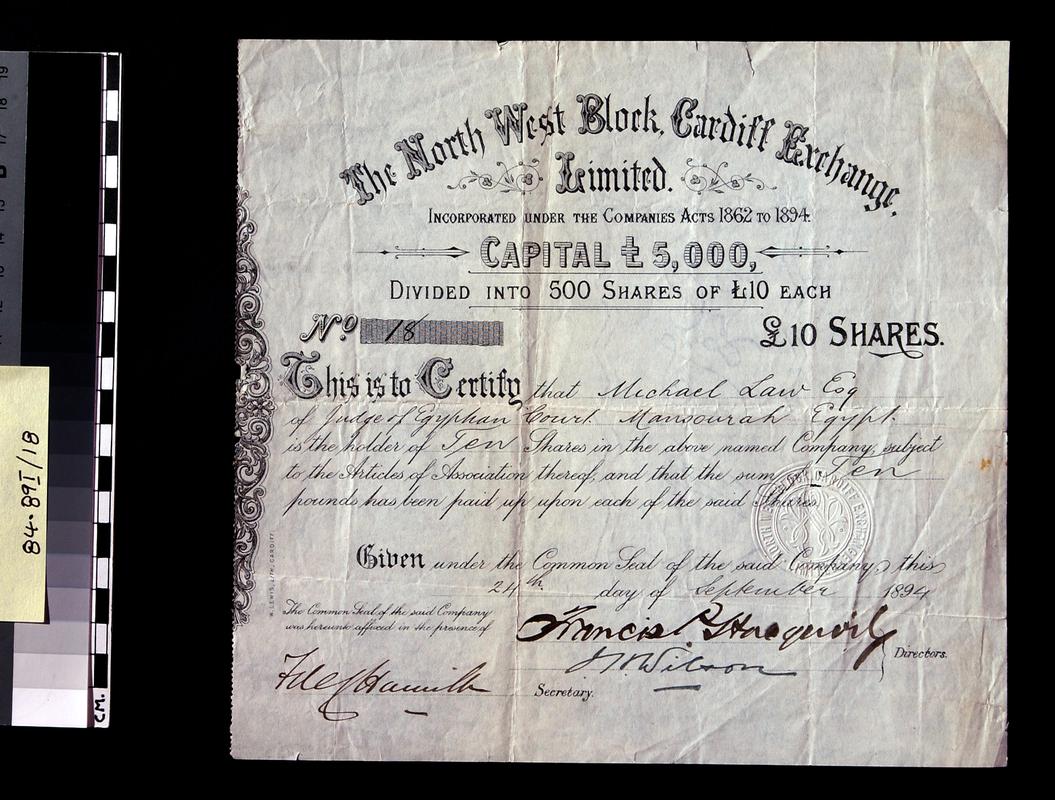 The North West Block, Cardiff Exchange,
Limited.
INCORPORATED UNDER THE COMPANIES ACTS 1862 TO 1894.
CAPITAL £5,000,
DIVIDED INTO 500 SHARES OF £10 EACH
No 18
£10 SHARES.
This is to Certify that Michael Law Esq
of Judge of Egyptian Court Mansourah Egypt.
is the holder of Ten Shares in the above named Company, subject
to the Articles of Association thereof, and that the sum of Ten
pounds has been paid up upon each of the said Shares.
Given under the Common Seal of the said Company, this
24th day of September 1894
The Common Seal of the said Company
was hereunto affixed in the presence of
Francis
Wilson
Directors.
Secretary.
W. LEWIS, LITH, CARDIFF
NORTH WEST BLOCK CARDIFF EXCHANGE
84.89I/18
CM.
19
18
17